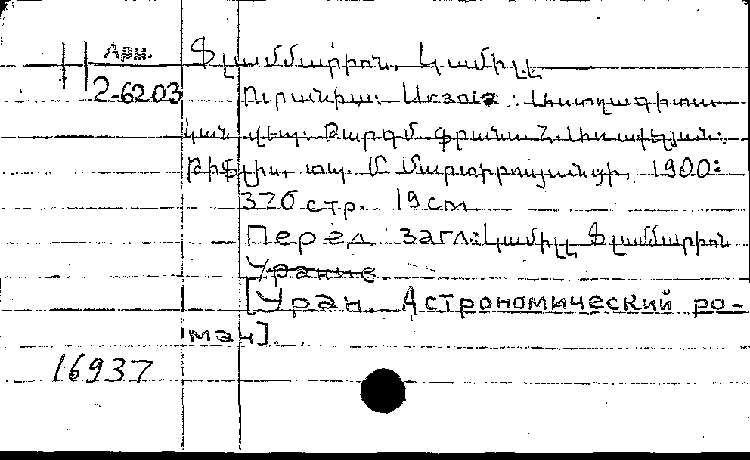 Арм. Ֆլամմարիոն, Կամիլլ
2-6203 Ուրանիա: Աստղագիտա-
կան վէպ: Թարգմ. Ֆրանս.
Թիֆլիս, տպ. Մ. Մարտիրոսյանցի, 1900:
320 стр. 19 см
Перед загл: Կամիլլ Ֆլամմարիոն
Урание
[Уран. Астрономический ро-
ман].
16937